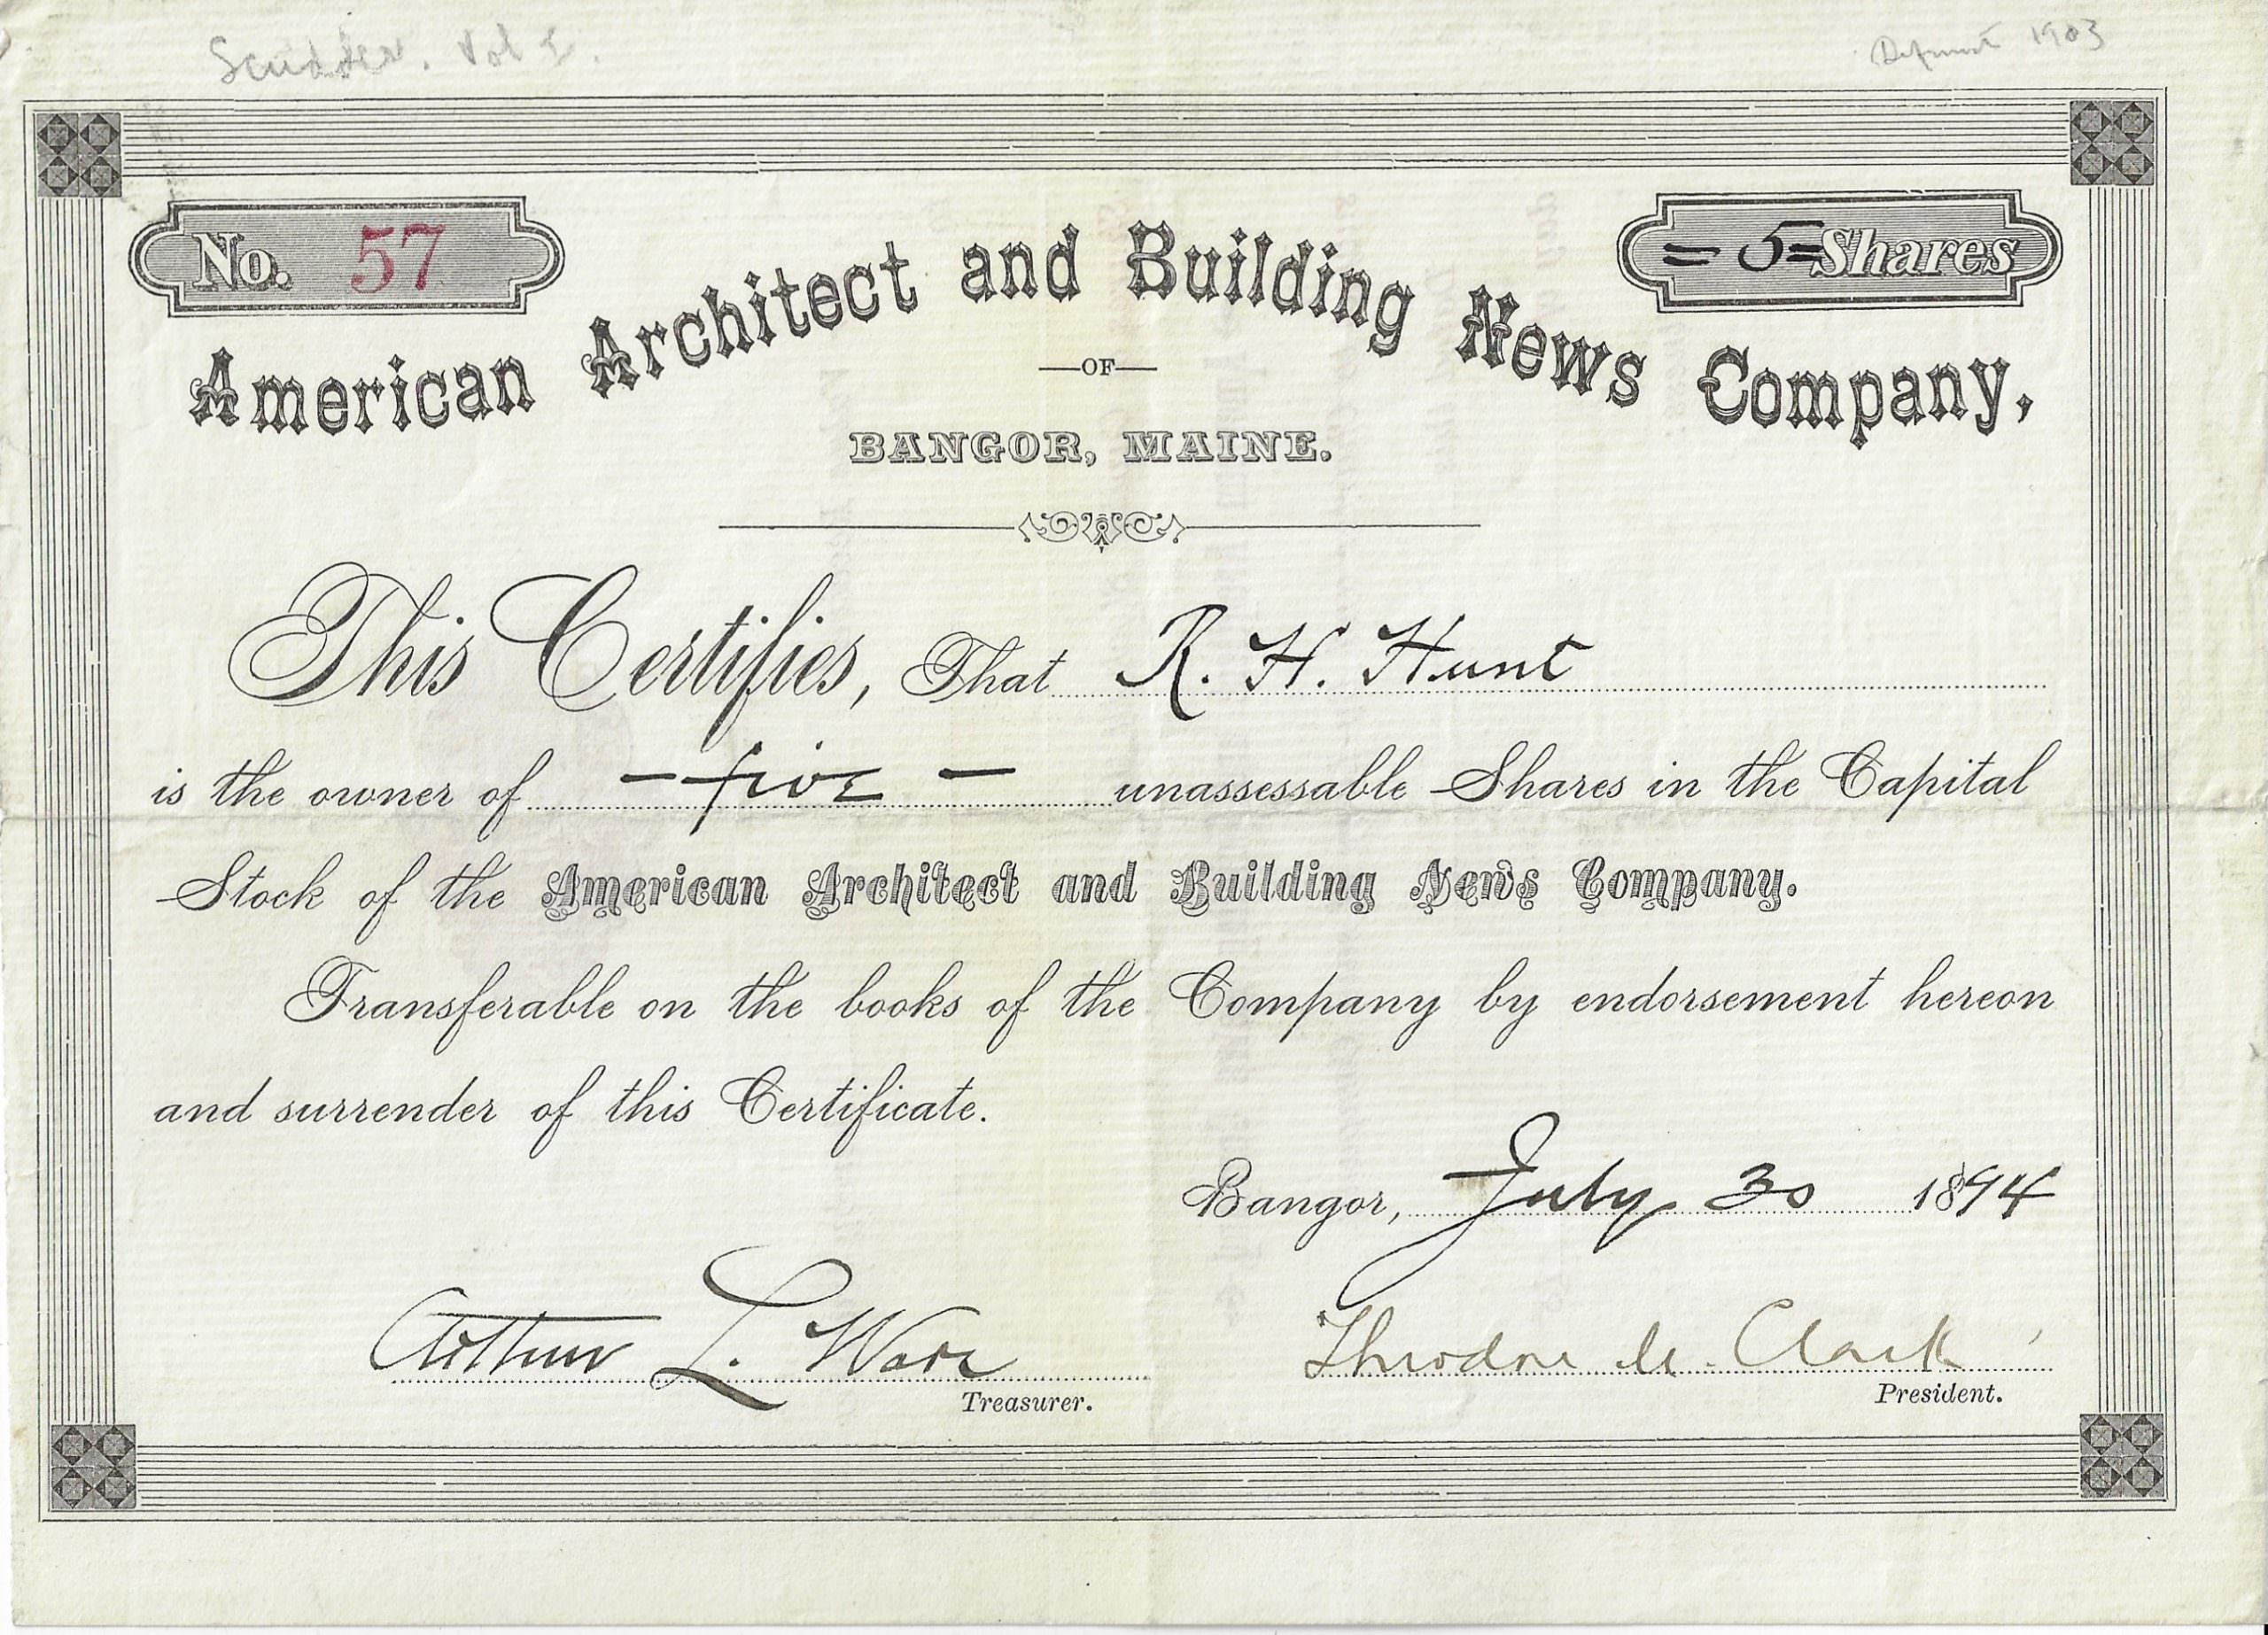 Scudder. Vol I.
Defunct 1903
No. 57
= 5 = Shares
American Architect and Building News Company,
—OF—
BANGOR, MAINE.
This Certifies, That R. H. Hunt
is the owner of — five — unassessable Shares in the Capital
Stock of the American Architect and Building News Company.
Transferable on the books of the Company by endorsement hereon
and surrender of this Certificate.
Bangor, July 30 1894
Arthur L. Ware
Treasurer.
Theodore M. Clark
President.